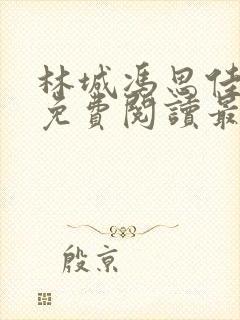 林城馮思佳
免費閱讀最
殷京